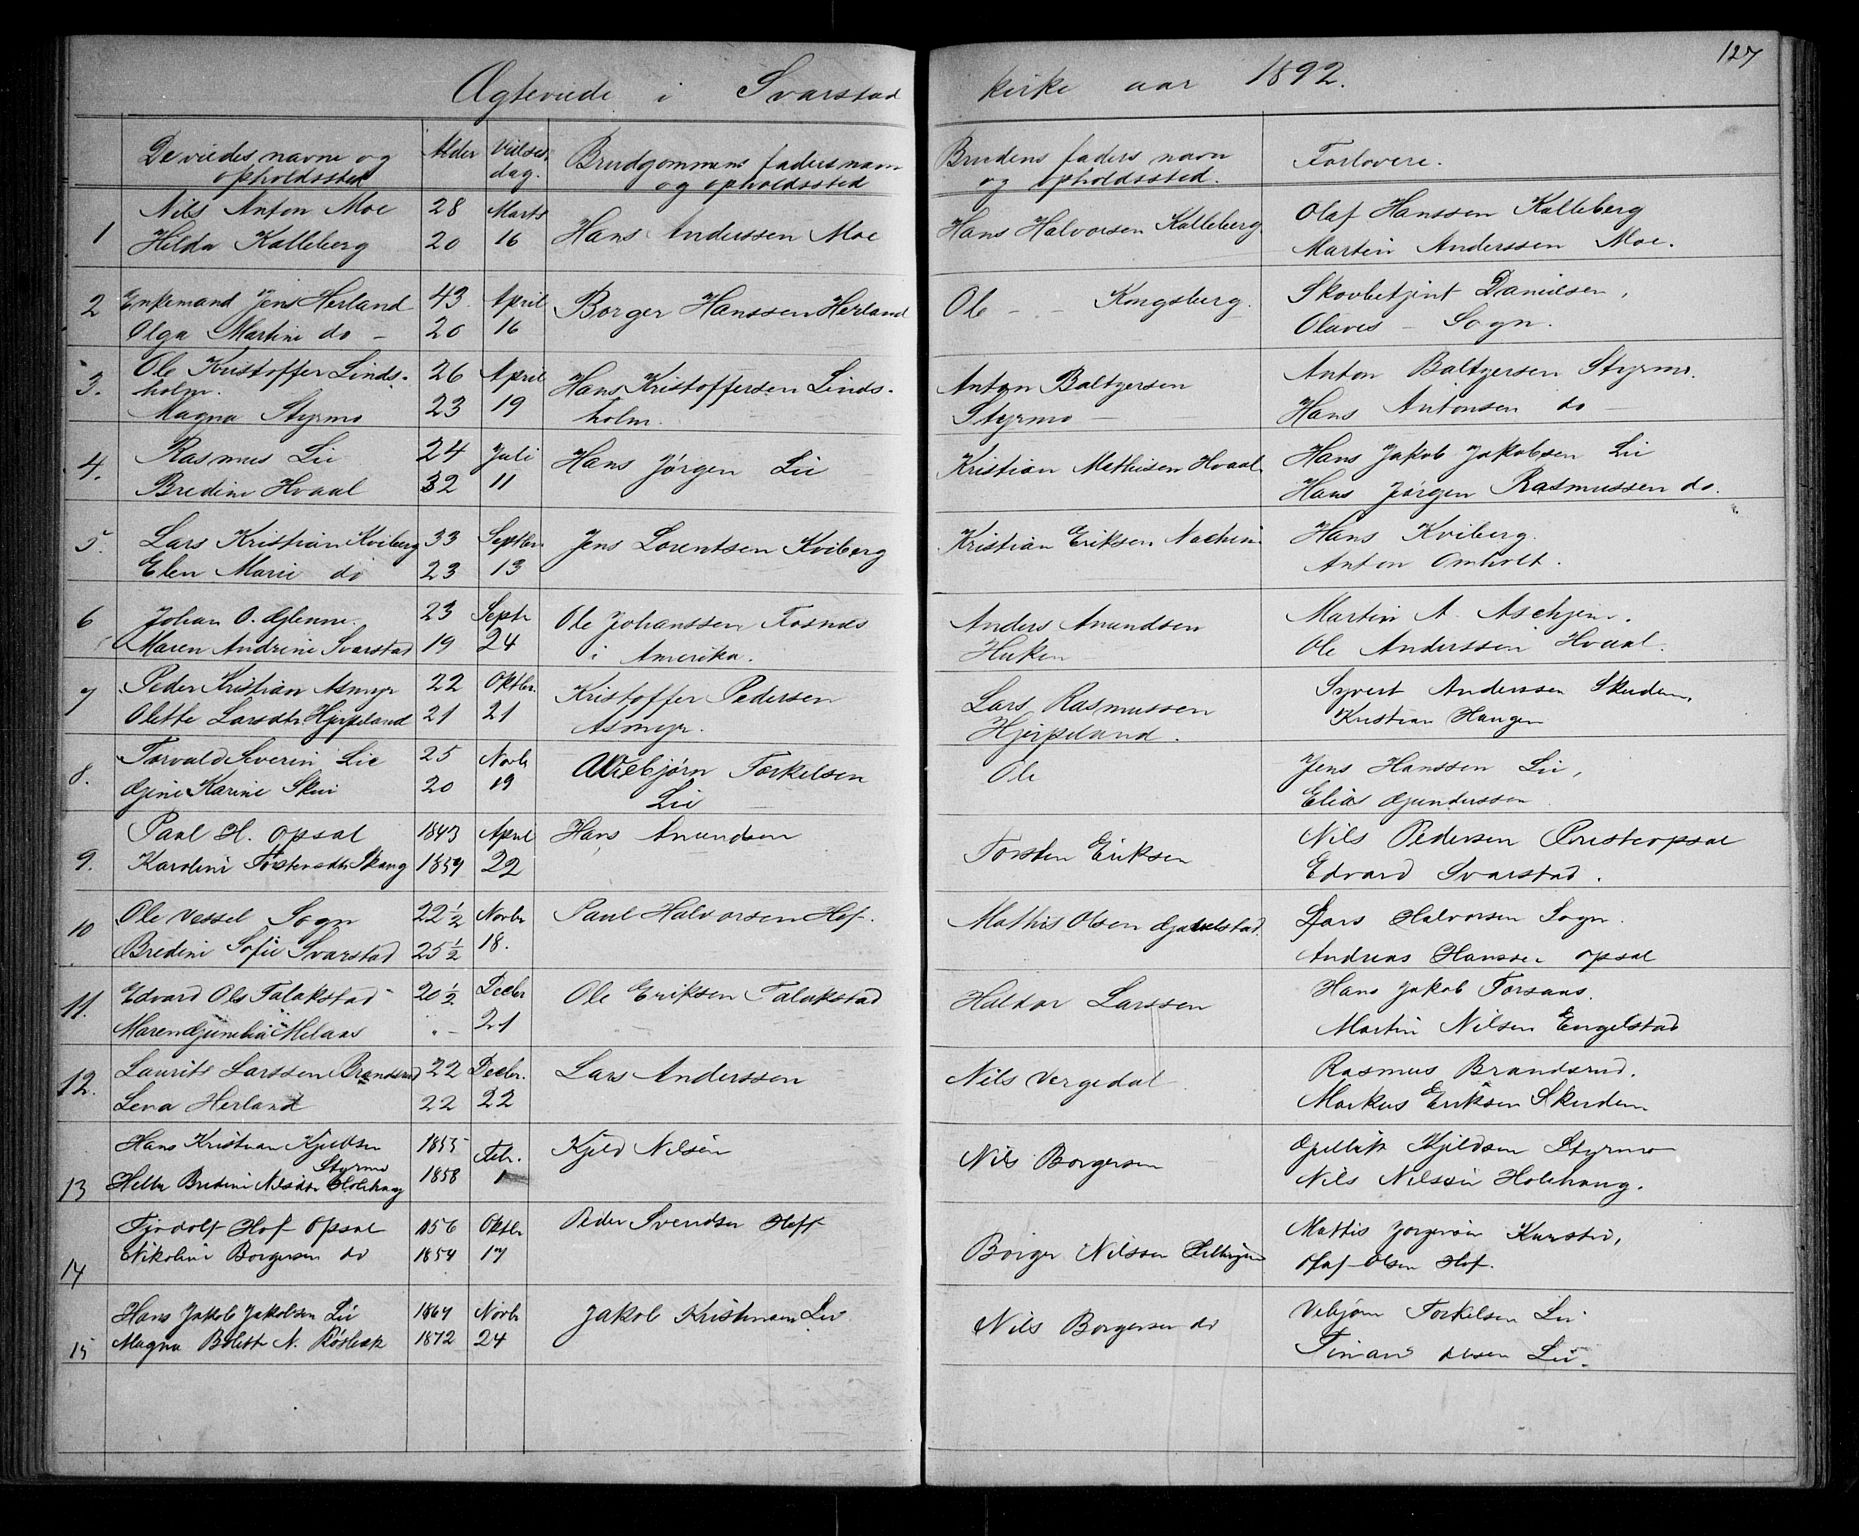 127
Ægteviede i Svarstad kirke aar 1892.
De viedes navne og opholdssted
Alder
Vielses dag.
Brudgommens faders navn og opholdssted
Brudens faders navn og opholdssted.
Forlovere.
1 Nils Anton Moe 28 Marts Hans Anderssen Moe Hans Halvorsen Kalleberg Olaf Hanssen Kalleberg
Hilda Kalleberg 20 16 Martin Anderssen Moe.
2 Enkemand Jens Herland 43 April Borger Hanssen Herland Ole - - Kongsberg. Skovbetjent Danielsen,
Olga Martini do - 20 16 Olaves - Sogn.
3. Ole Kristoffer Linds- 26 April Hans Kristoffersen Linds- Anton Baltzersen Anton Baltzersen Styrmo.
holm. holm. Styrmo -
Magna Styrmo 23 19 Hans Antonsen do -
4. Rasmus Lie 24 Juli Hans Jørgen Lie Kristian Mathisen Hvaal Hans Jakob Jakobsen Lie
Bredine Hvaal 32 11 Hans Jørgen Rasmussen do.
5. Lars Kristian Kviberg 33 Septbr. Jens Lorentsen Kviberg Kristian Eriksen Hans Kviberg.
Elen Marie do 23 13 Anton Omholt.
6 Johan O. Glenne. 23 Septr Ole Johanssen Fosnæs Anders Amundsen Martin A. Aschjem.
Maren Andrine Svarstad 19 24 i Amerika. Huken Ole Anderssen Hvaal.
7 Peder Kristian Asmyr 22 Oktbr. Kristoffer Pedersen Lars Rasmussen Syvert Anderssen Skuden,
Olette Larsdtr Hjerpeland 21 21 Asmyr. Hjerpeland. Kristian Haugen
8. Torvald Severin Lie 25 Novbr Viebjørn Torkelsen Ole Jens Hanssen Lie,
Gine Karine Skui 20 19 Lie Elias Gunderssen
9. Paal H. Opsal 1843 April Hans Amundsen Torsten Eriksen Nils Pedersen Præsteopsal
Karoline Torstensdtr Skaug 1859 22 Edvard Svarstad.
10 Ole Vessel Sogn 22 ½ Novbr Paul Halvorsen Hof. Mathis Olsen Gjavelstad. Lars Halvorsen Sogn.
Bredine Sofie Svarstad 25 ½ 18. Andreas Hanssen Opsal
11. Edvard Ols Talakstad 20 ½ Decbr Ole Eriksen Talakstad Haldor Larssen Hans Jakob Forsaas.
Maren Gunelia Melaas " - 21 Martin Nilsen Engelstad
12. Laurits Larssen Brandsrud 22 Decbr. Lars Anderssen Nils Vergedal Rasmus Brandsrud.
Lena Herland 22 22 Markus Eriksen Skuden
13 Hans Kristian Kjeldsen Styrmo 1855 Febr. Kjeld Nilsen Nils Borgersen Kjeldsen Styrmo
Helle Bredine Nilsdtr Holehaug 1858 1 Nils Nilsen Holehaug.
14 Tjodolf Hof Opsal 1856 Oktbr Peder Svendsen Hoff Borger Nilssen Mattis Jorgensen
Nikoline Borgersen do 1854 17 Olaf Olsen Hof.
15 Hans Jakob Jakobsen Lie 1864 Novbr Jakob Kristensen Lie Nils Borgersen do Vebjørn Torkelsen Lie
Magna Bolette N. Røsbæk 1872 24 Olsen Lie.